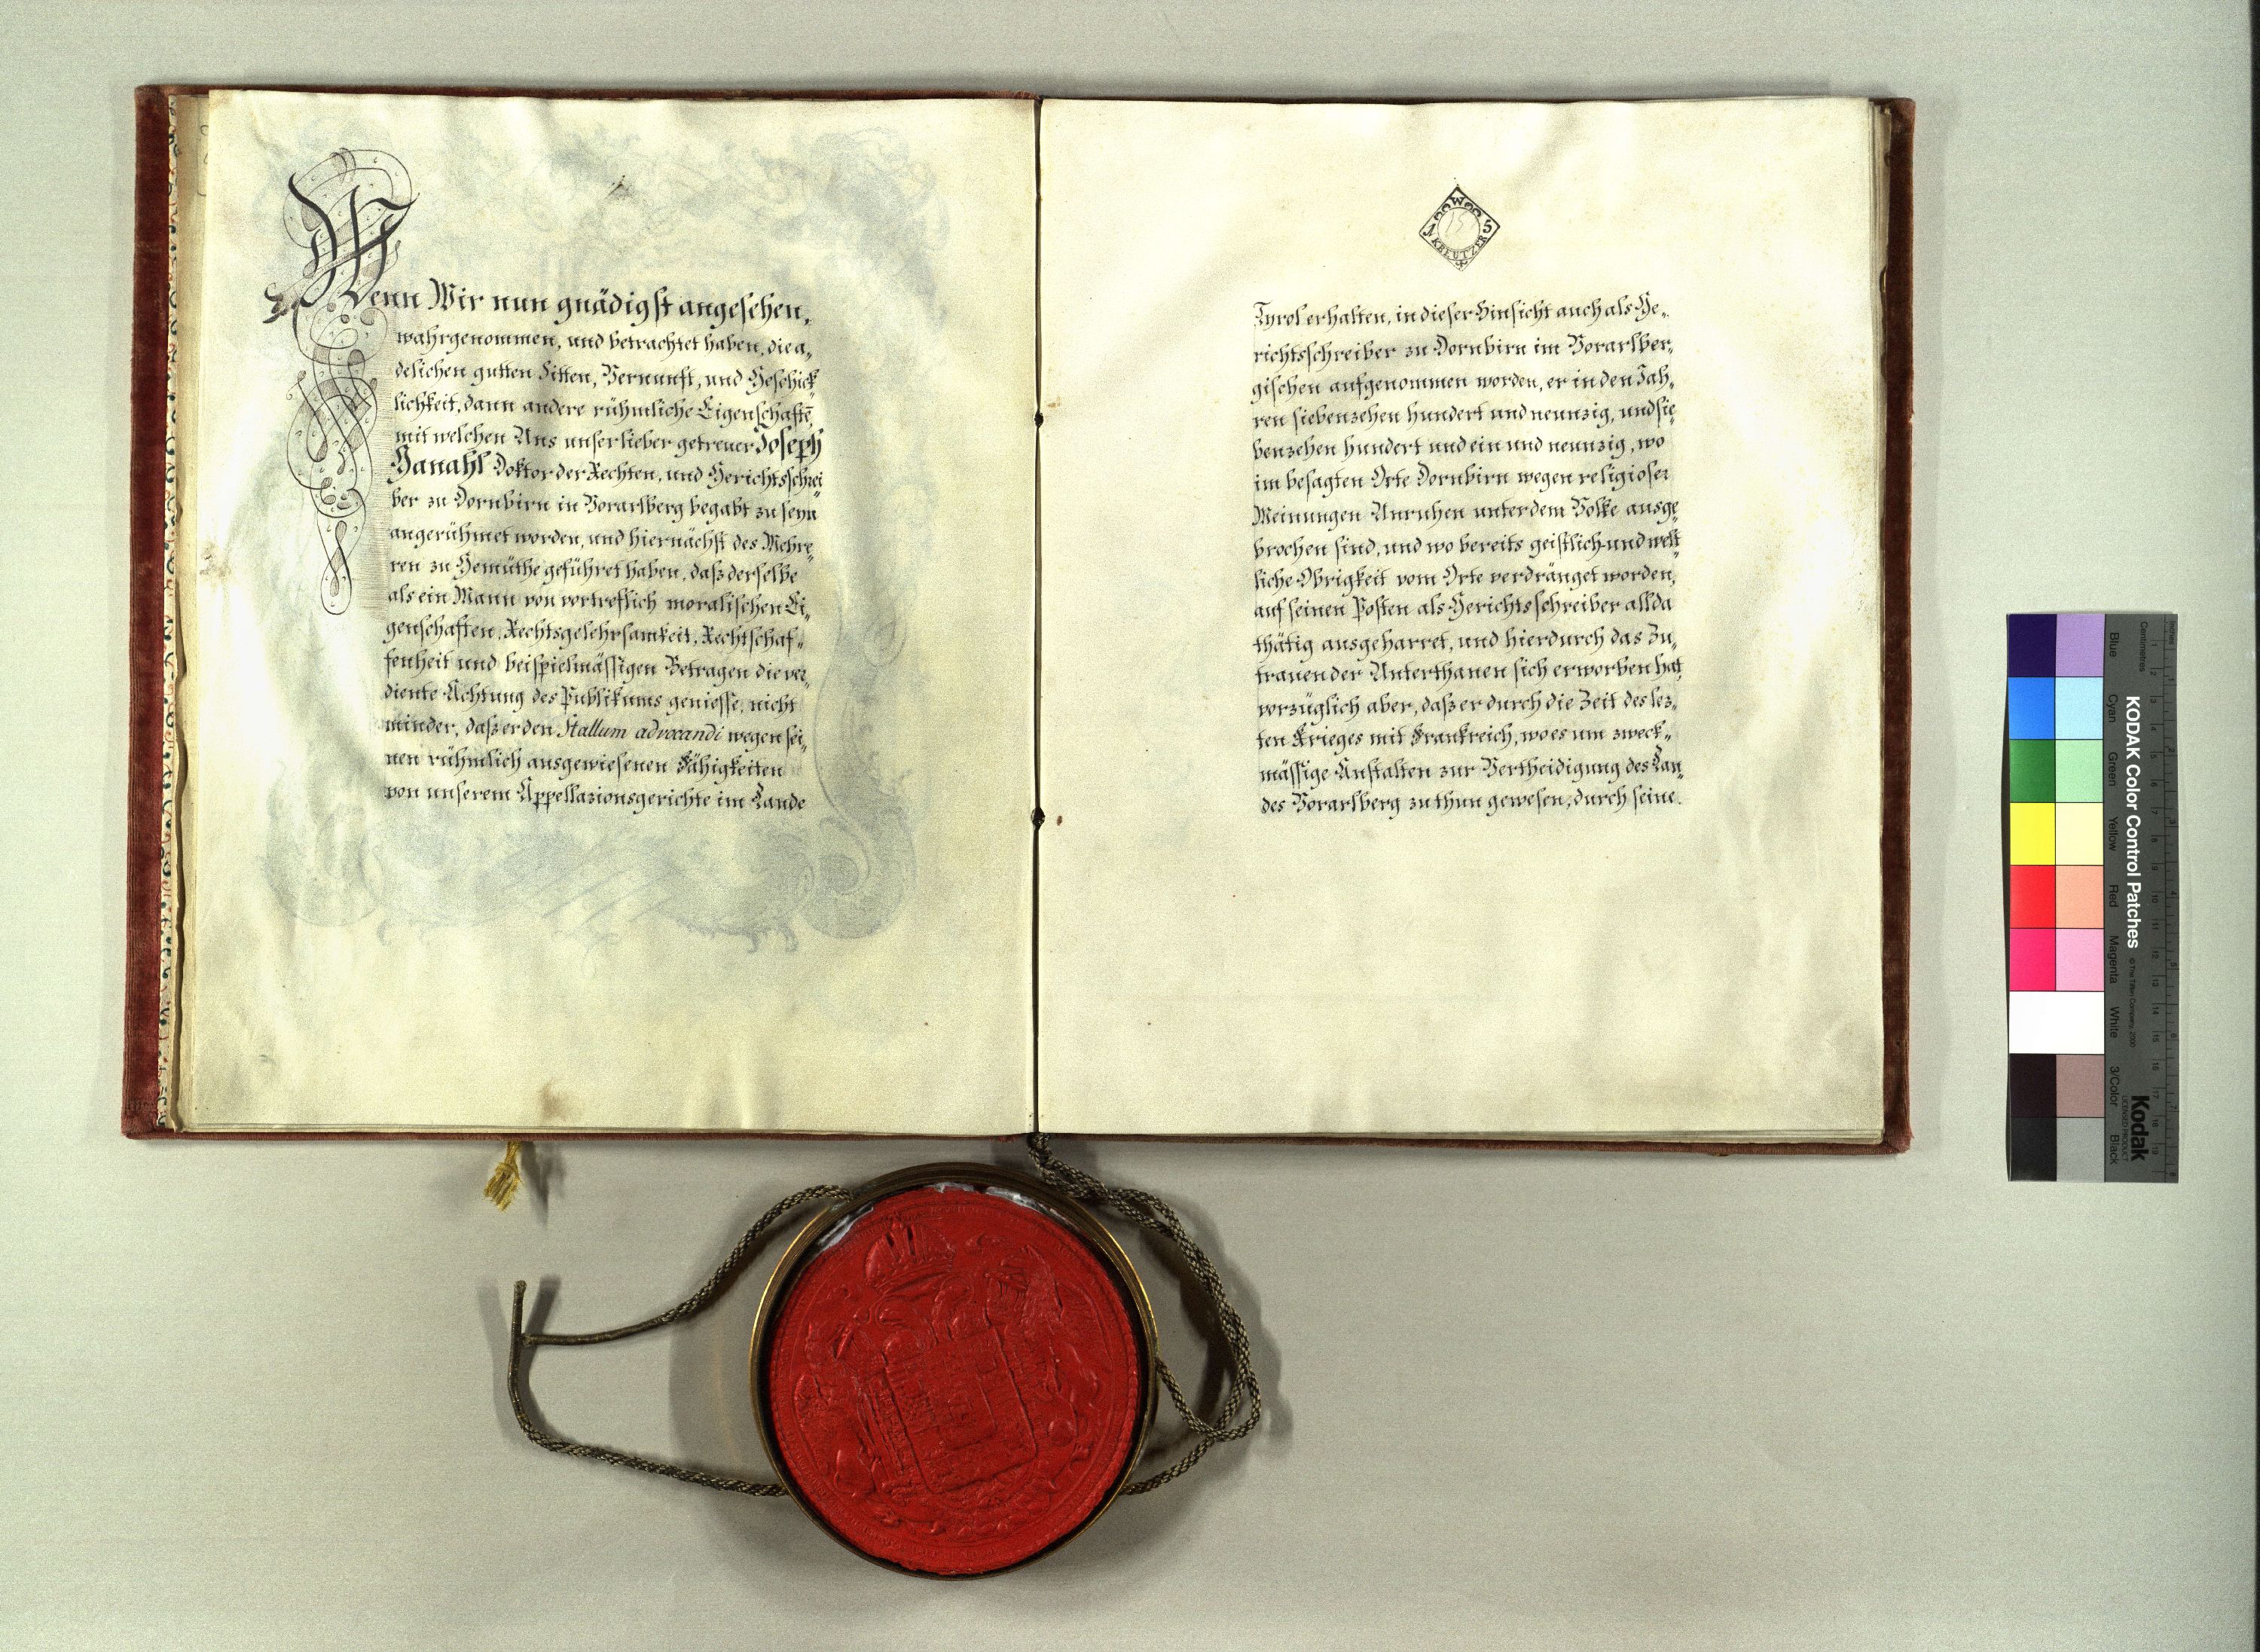 Wenn Wir nun gnädigst angesehen,
wahrgenommen, und betrachtet haben, die a„
delichen gutten Sitten, Vernunft, und Geschick„
lichkeit, dann andere rühmliche Eigenschaftē,
mit welchen Uns unser lieber getreuer Joseph
Ganahl Doktor der Rechten, und Gerichtsschrei„
ber zu Dornbirn in Vorarlberg begabt zu seyn
angerühmet worden, und hiernächst des Mehre„
ren zu Gemüthe geführet haben, daß derselbe
als ein Mann von vortreflich moralischen Ei„
genschaften, Rechtsgelehrsamkeit, Rechtschaf„
fenheit und beispielmässigen Betragen die ver„
diente Achtung des Publikums geniesse, nicht
minder, daß er den Stallum advocandi wegen sei„
nen rühmlich ausgewiesenen Fähigkeiten
von unserem Appellazionsgerichte im Lande
W
15
KREUTZER
Tyrol erhalten, in dieser Hinsicht auch als Ge„
richtsschreiber zu Dornbirn im Vorarlber„
gischen aufgenommen worden, er in den Jah„
ren siebenzehen hundert und neunzig, und sie„
benzehen hundert und ein und neunzig, wo
im besagten Orte Dornbirn wegen religioser
Meinungen Unruhen unter dem Volke ausge„
brochen sind, und wo bereits geistlich- und welt„
liche Obrigkeit vom Orte verdränget worden,
auf seinen Posten als Gerichtsschreiber allda
thätig ausgeharret, und hierdurch das Zu„
trauen der Unterthanen sich erworben hat,
vorzüglich aber, daß er durch die Zeit des lez„
ten Krieges mit Frankreich, wo es um zweck„
mässige Anstalten zur Vertheidigung des Lan„
des Vorarlberg zu thun gewesen, durch seine
KODAK Color Control Patches
© The Tiffen Company, 2000
Kodak
LICENSED PRODUCT
Blue Cyan Green Yellow Red Magenta White 3/Color Black
Centimetres
Inches